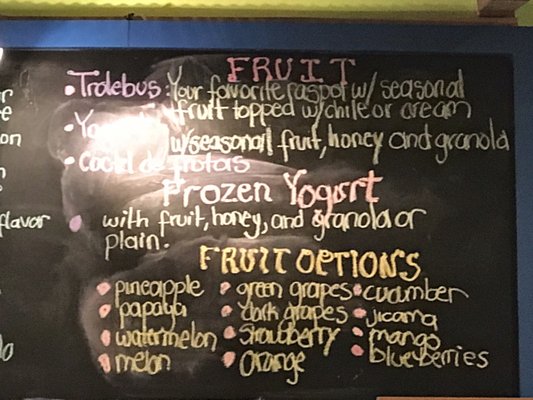 FRUIT
• Trolebus: Your favorite raspot w/ seasonal
fruit topped w/ chile or cream
w/seasonal fruit, honey and granola
• Coctel de frutas
Frozen Yogurt
flavor
• with fruit, honey, and granola or
plain.
FRUIT OPTIONS
• pineapple • green grapes • cucumber
• papaya • dark grapes • jicama
• watermelon • strawberry • mango
• melon • orange • blueberries